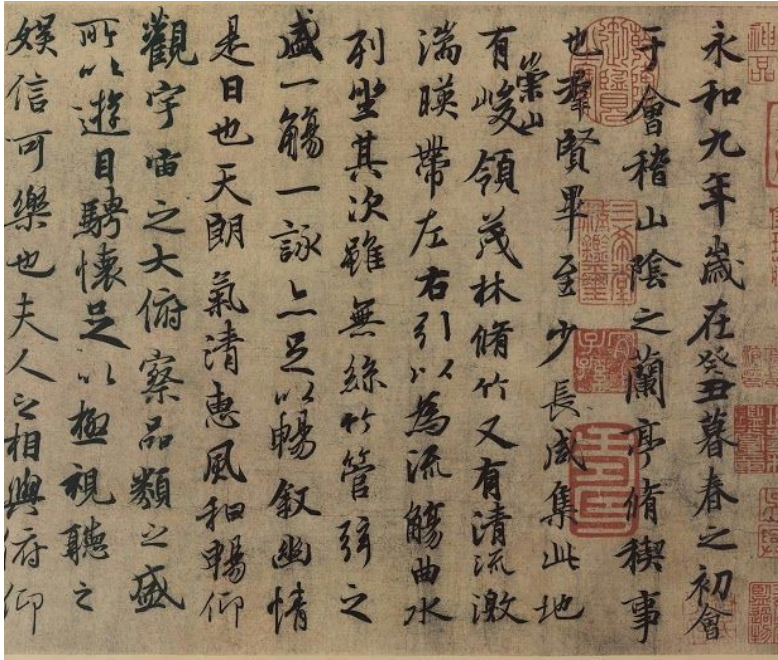 永和九年歲在癸丑暮春之初會
于會稽山陰之蘭亭脩稧事
也羣賢畢至少長咸集此地
有崇山峻領茂林脩竹又有清流激
湍暎帶左右引以為流觴曲水
列坐其次雖無絲竹管弦之
盛一觴一詠亦足以暢叙幽情
是日也天朗氣清惠風和暢仰
觀宇宙之大俯察品類之盛
所以遊目騁懷足以極視聽之
娛信可樂也夫人之相與俯仰
神品
三希堂精鑑璽
宜子孫